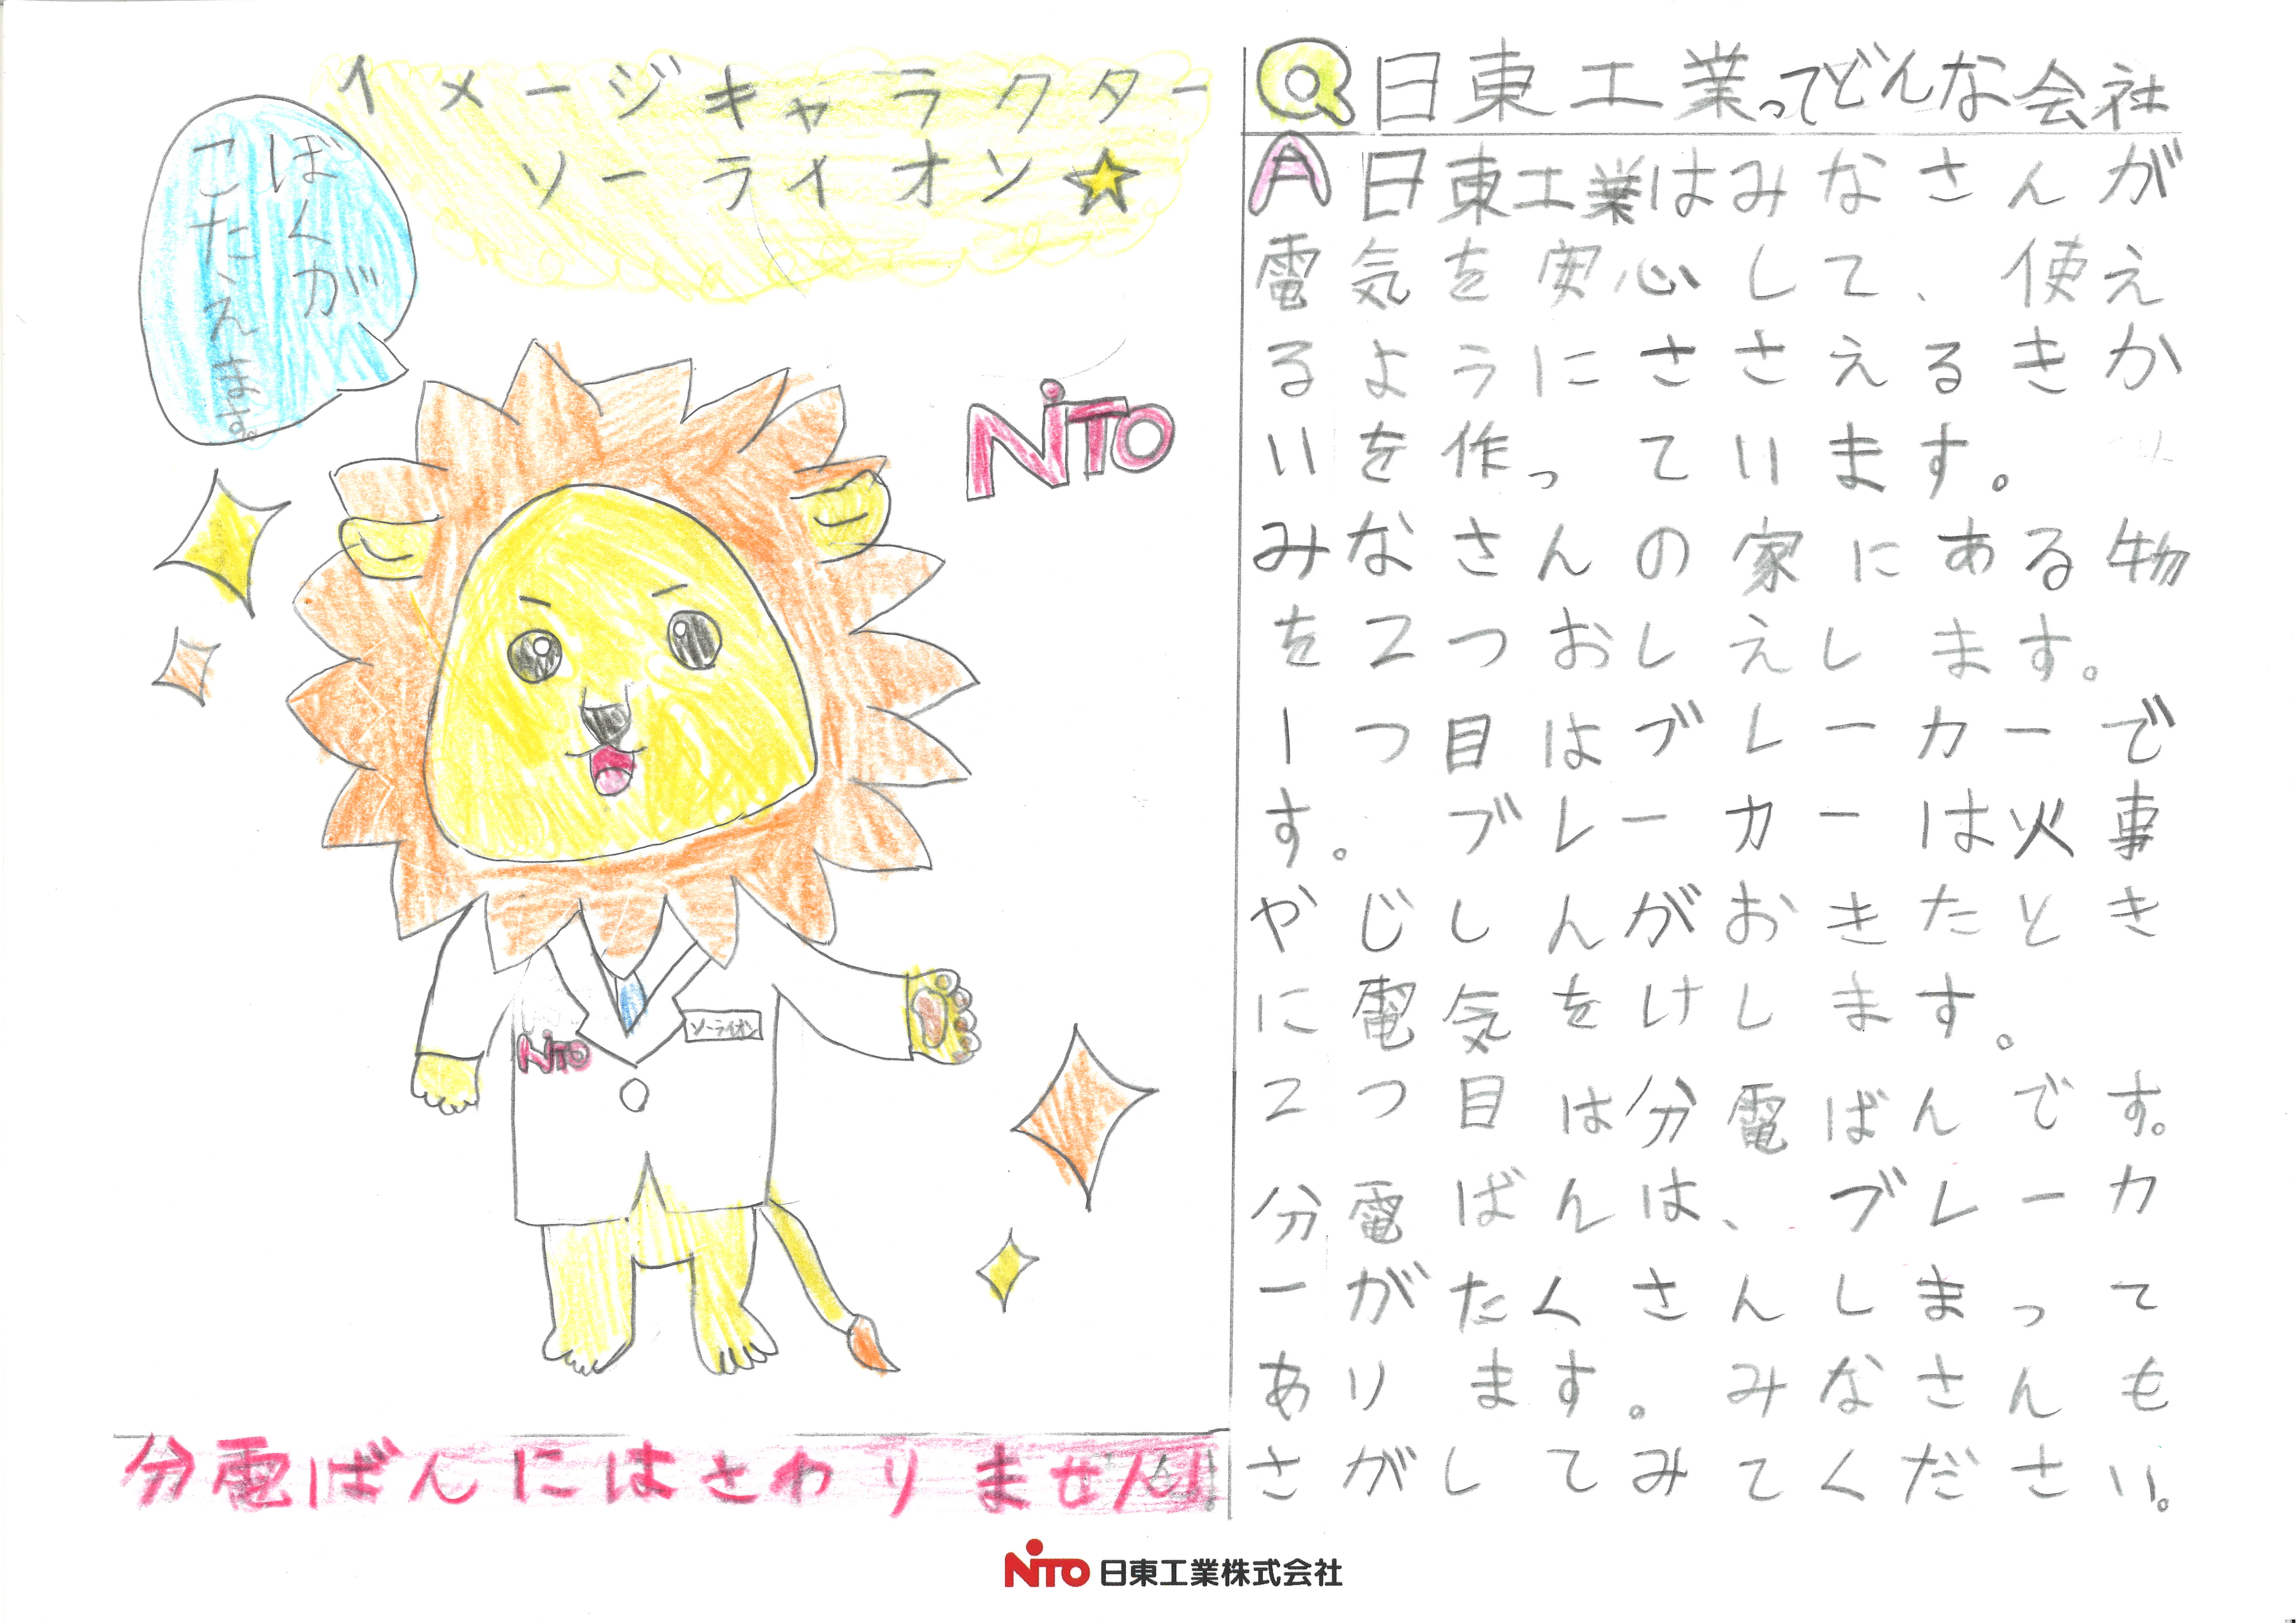 イメージキャラクター
ソーライオン☆
ぼくが
こたえます。
NiTO
ソーライオン
NiTO
分電ばんにはさわりません!
Q日東工業ってどんな会社
A日東工業はみなさんが
電気を安心して、使え
るようにささえるきか
いを作っています。
みなさんの家にある物
を2つおしえします。
1つ目はブレーカーで
す。ブレーカーは火事
やじしんがおきたとき
に電気をけします。
2つ目は分電ばんです。
分電ばんは、ブレーカ
ーがたくさんしまって
あります。みなさんも
さがしてみてください。
NiTO 日東工業株式会社